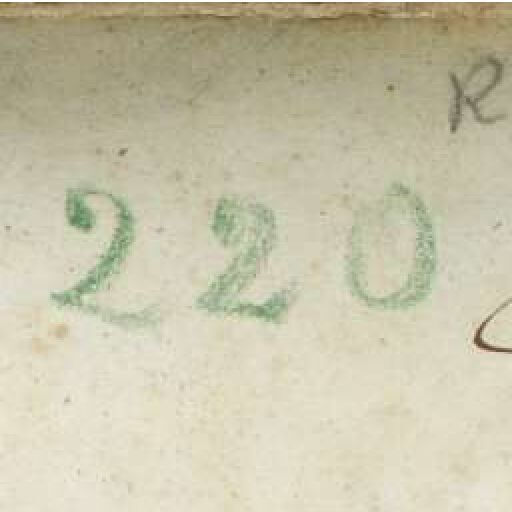 R
220